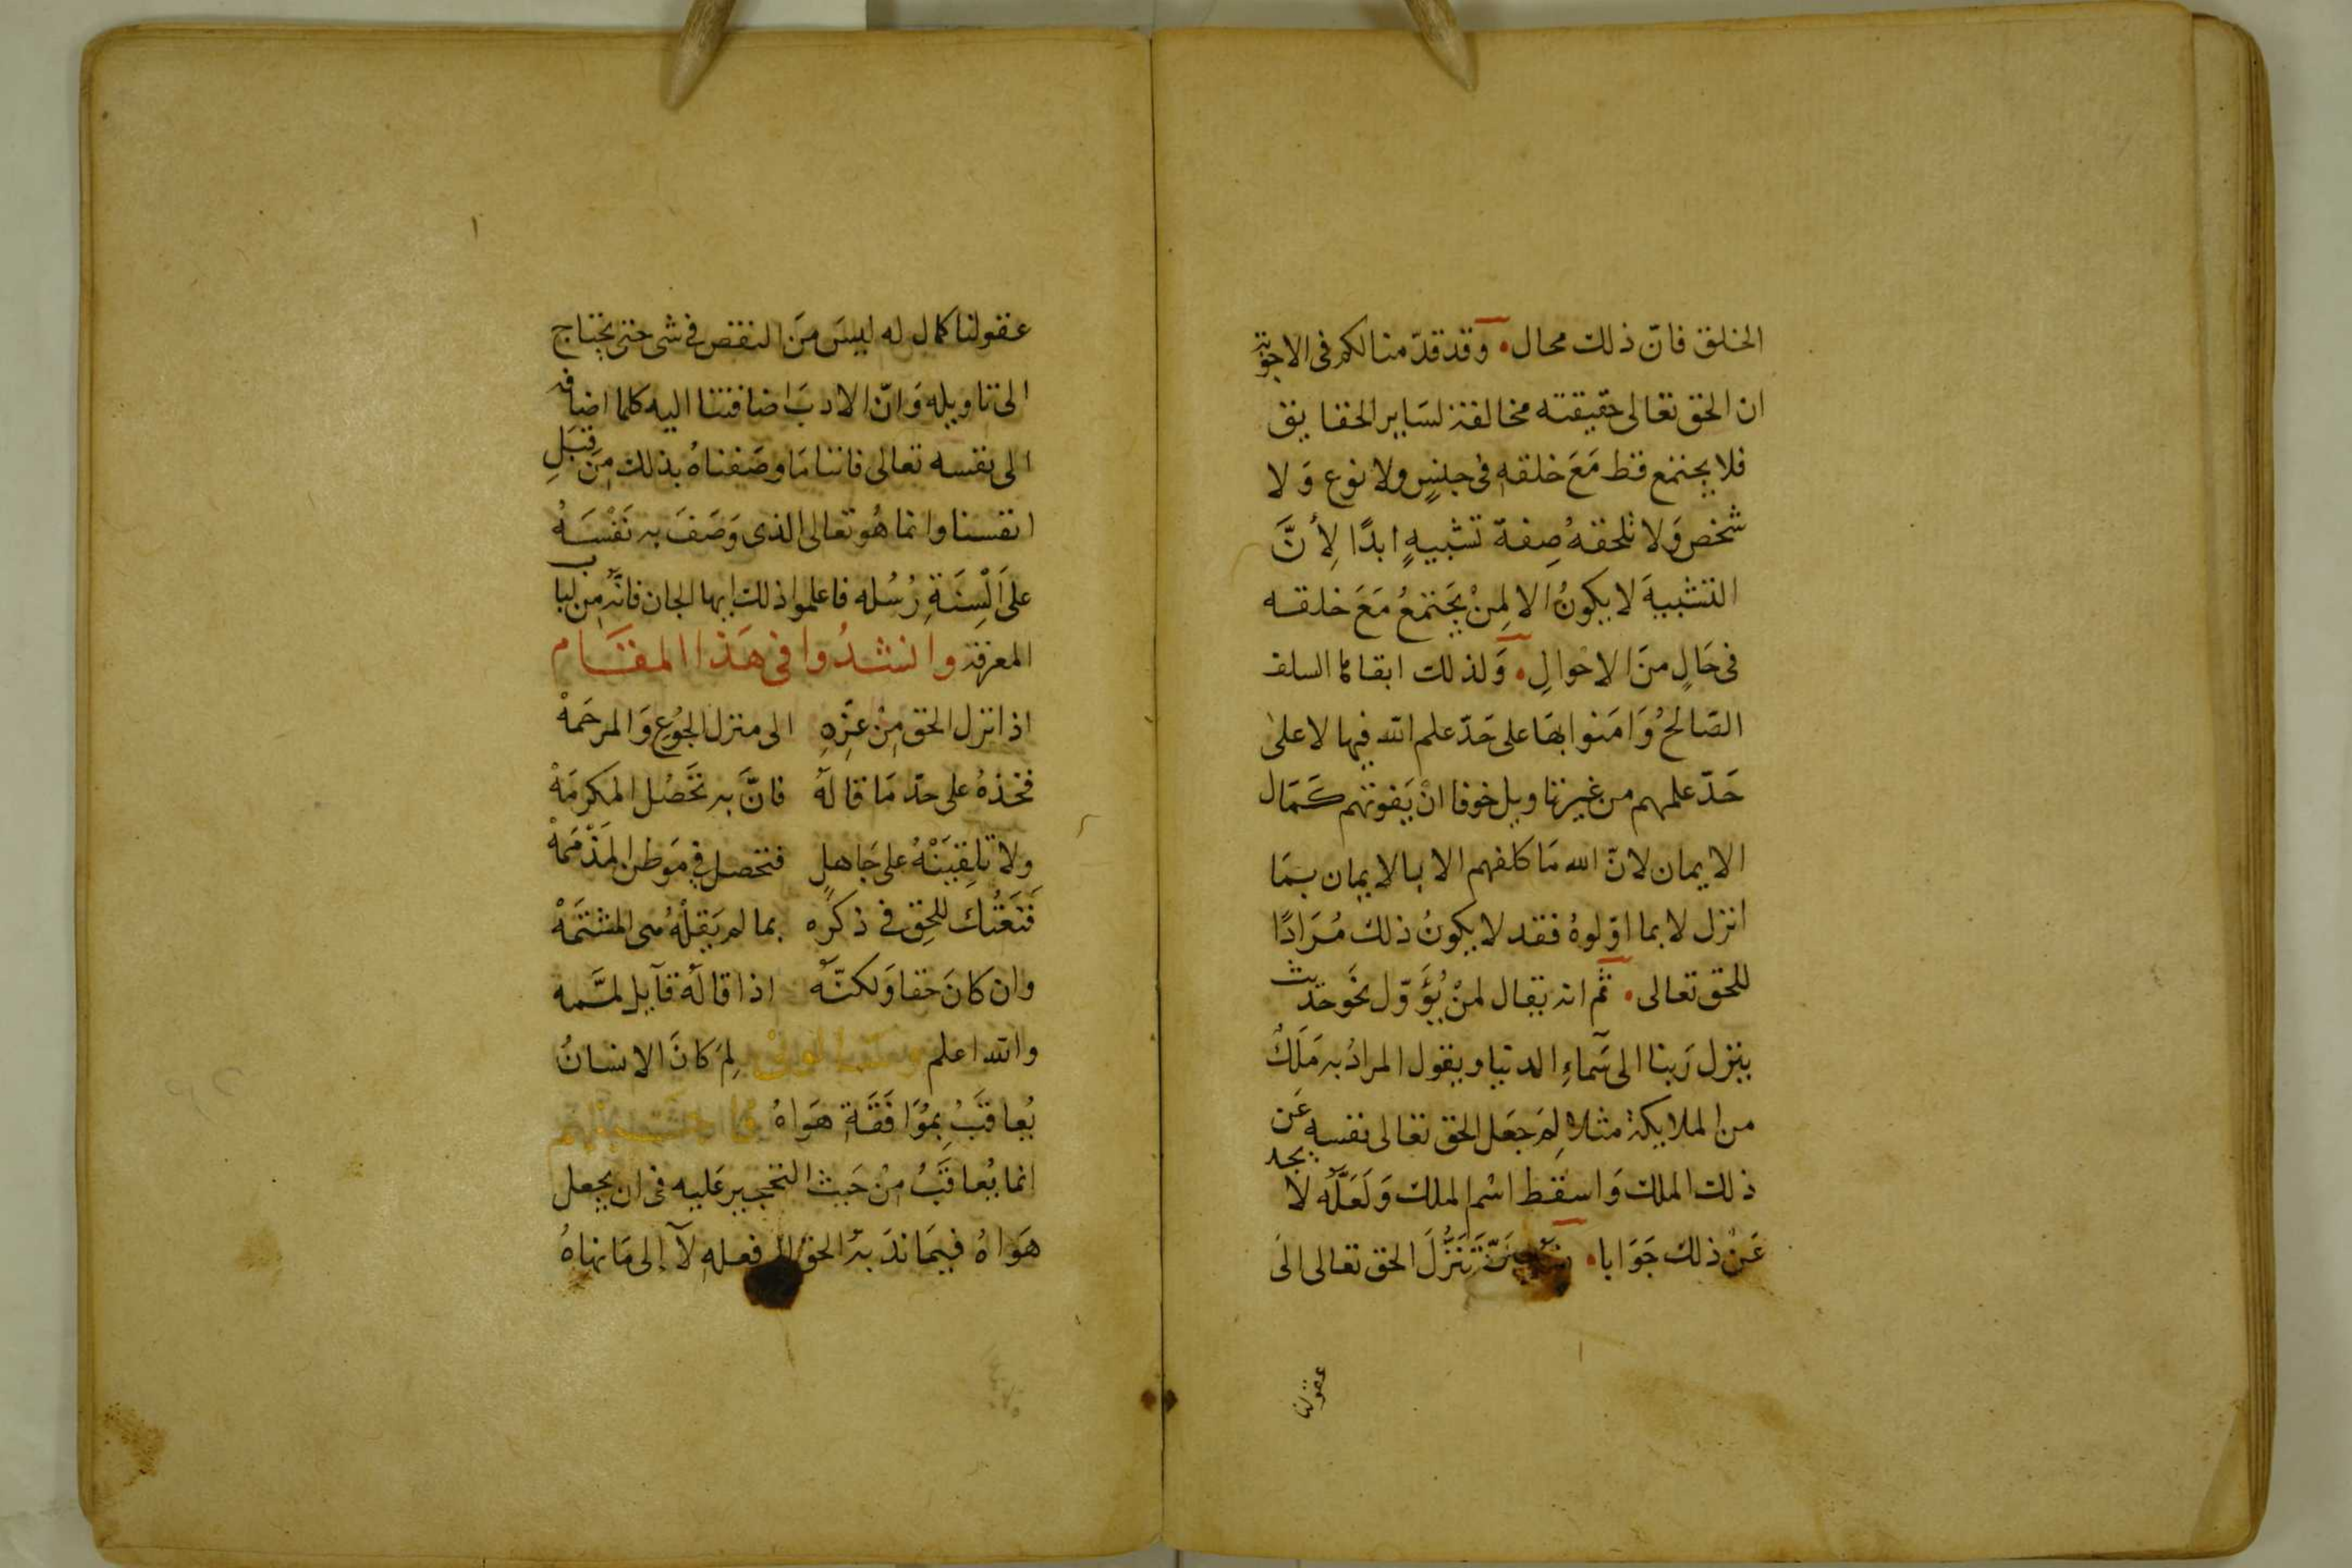 الخلق فانّ ذلك محال ۰ وَقد قدّمنا لكم فى الاجوبة
ان الحق تعالى حقيقته مخالفة لسَاير الحقايق
فلا يجتمع قط مَعَ خلقهِ فى جنسٍ ولا نوع وَلا
شخص وَلا تلحقهُ صِفة تشبيهٍ ابدًا لِأنَّ
التشبيهَ لا يكونُ الا لِمنْ يَجتمعُ مَعَ خلقه
فى حَالٍ منَ الاحوالِ ۰ وَلذلك ابقاها السلف
الصَالحُ وَامَنوا بهَا على حَدّ علم الله فيها لا على
حَدّ علمهم من غير تاويل خوفا انْ يَفوتهم كَمَال
الايمان لانّ الله مَا كلفهم الا بالايمان بمَا
انزل لا بما اوّلوهُ فقد لا يكونُ ذلك مُرَادًا
للحق تعالى ۰ ثمّ انه يقال لمنْ يُؤَوّل نحَو حَديث
ينزل رَبنا الى سَمآءِ الدنيا ويقول المرادُ به مَلَكٌ
من الملايكة مثلا لِمَ جعَل الحق تعالى نفسه عَن
ذلك الملك وَاسقط اسْم الملك وَلَعَلّهُ لا يجد
عَنْ ذلك جَوَابا ۰ تَنَزُّلَ الحق تعالى الَى
عقولنا
عقولنا كمال له ليسَ منَ النقص فى شى حتى يحتاج
الى تاويله وَانّ الادبَ اضافتنا اليه كلما اضافه
الى نفسه تعالى فاننا مَا وصَفناهُ بذلك مِنَ قبَلِ
انفسنا وانما هُو تعالى الذى وَصَفَ به نَفْسَهُ
على اَلْسِنَةِ رُسُله فاعلموا ذلك ايها الجان فانّه مِن لباب
المعرفة وانشدُوا فى هَذا المقَام
اذا نزل الحق مِنْ عَزّهِ الى منزل الجُوع وَالمرحَمهْ
فخذهُ على حدّ مَا قالهُ فانَّ به تحَصُل المكرمَهْ
ولا تلقِيَنْهُ على جَاهلٍ فتحصل فى مَوطن المَذْمَمهْ
فَنَعَتُك للحِق فى ذكره بما لم يَقلْهُ هى المشتمَهْ
وان كانَ حَقا وَلكنّهُ اذا قالهُ قآيل لمَّمه
والله اعلم لِمَ كانَ الانسانُ
يُعاقبُ بِمُوَافَقَةِ هَوَاهُ
انما يُعاقَبُ مِنْ حَيث التحجير عَليه فى ان يجعل
هَوَاهُ فيمَا ندَبهُ الحق الى فعلهِ لآ إلى مَا نهاهُ